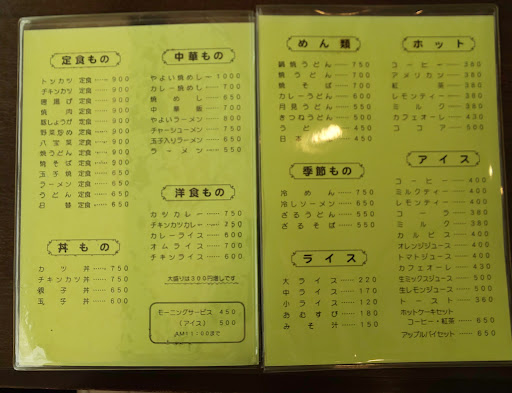 定食もの
トンカツ 定食 900
チキンカツ 定食 900
唐揚げ 定食 900
焼肉 定食 900
豚しょうが 定食 900
野菜炒め 定食 900
八宝菜 定食 900
焼うどん 定食 900
焼そば 定食 900
玉子焼 定食 650
ラーメン 定食 650
うどん 定食 650
日替 定食 650
丼もの
カツ丼 750
チキンカツ丼 750
親子丼 650
玉子丼 650
中華もの
やよい焼めし 1000
カレー焼めし 700
焼めし 650
中華飯 700
やよいラーメン 800
チャーシューメン 750
玉子入りラーメン 650
ラーメン 550
洋食もの
カツカレー 750
チキンカツカレー 750
カレーライス 600
オムライス 700
チキンライス 600
大盛りは300円増しです
モーニングサービス 450
(アイス) 500
AM11:00まで
めん類
鍋焼うどん 750
焼うどん 700
焼そば 700
カレーうどん 600
月見うどん 550
きつねうどん 550
うどん
日本
季節もの
冷めん 750
冷しソーメン 650
ざるうどん 550
ざるそば 550
ライス
大ライス 220
中ライス 170
小ライス 120
おむすび 180
みそ汁 150
ホット
コーヒー 380
アメリカン 380
紅茶 380
レモンティー 380
ミルク 380
カフェオーレ 430
ココア 500
アイス
コーヒー 400
ミルクティー 400
レモンティー 400
コーラ 380
ミルク 380
カルピス 400
オレンジジュース 400
トマトジュース 400
カフェオーレ 450
生ミックスジュース 500
生レモンジュース 500
トースト 360
ホットケーキセット
コーヒー・紅茶 650
アップルパイセット 650